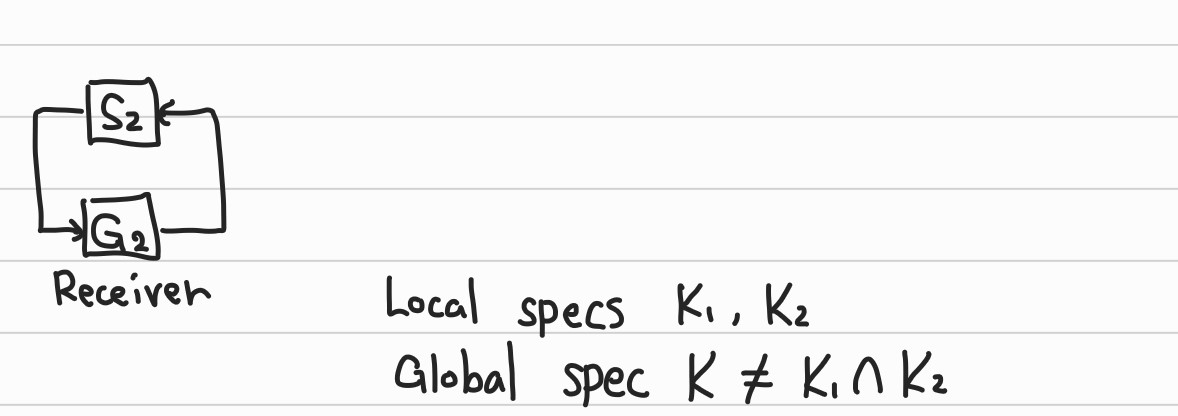 S₂
G₂
Receiver
Local specs K₁, K₂
Global spec K ≠ K₁ ∩ K₂